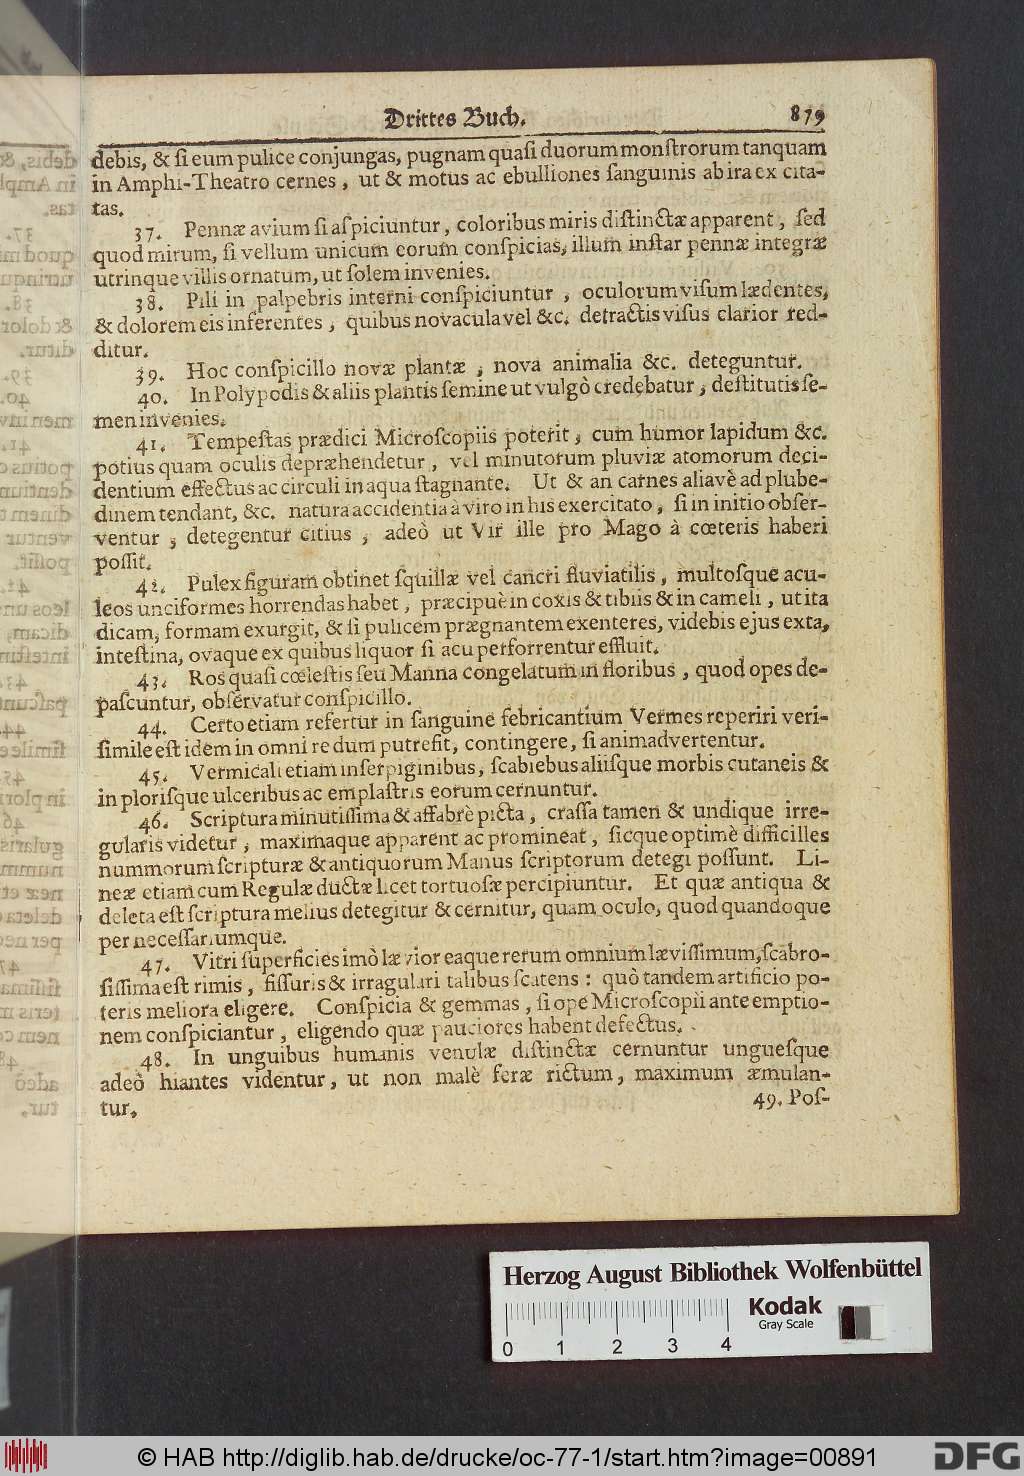 Drittes Buch. 879
debis, & ſi eum pulice conjungas, pugnam quaſi duorum monſtrorum tanquam
in Amphi-Theatro cernes, ut & motus ac ebulliones ſanguinis ab ira ex cita-
tas.
37. Pennæ avium ſi aſpiciuntur, coloribus miris diſtinctæ apparent, ſed
quod mirum, ſi vellum unicum eorum conſpicias, illum inſtar pennæ integræ
utrinque villis ornatum, ut ſolem invenies.
38. Pili in palpebris interni conſpiciuntur, oculorum viſum lædentes,
& dolorem eis inferentes, quibus novacula vel &c. detractis viſus clarior red-
ditur.
39. Hoc conſpicillo novæ plantæ, nova animalia &c. deteguntur.
40. In Polypodis & aliis plantis ſemine ut vulgò credebatur, deſtitutis ſe-
men invenies.
41. Tempeſtas prædici Microſcopiis poterit, cum humor lapidum &c.
potius quam oculis depræhendetur, vel minutorum pluviæ atomorum deci-
dentium effectus ac circuli in aqua ſtagnante. Ut & an carnes aliavè ad plube-
dinem tendant, &c. natura accidentia à viro in his exercitato, ſi in initio obſer-
ventur, detegentur citius, adeò ut Vir ille pro Mago à cœteris haberi
poſſit.
42. Pulex figuram obtinet ſquillæ vel cancri fluviatilis, multoſque acu-
leos unciformes horrendas habet, præcipuè in coxis & tibiis & in cameli, ut ita
dicam, formam exurgit, & ſi pulicem prægnantem exenteres, videbis ejus exta,
inteſtina, ovaque ex quibus liquor ſi acu perforrentur effluit.
43. Ros quaſi cœleſtis ſeu Manna congelatum in floribus, quod opes de-
paſcuntur, obſervatur conſpicillo.
44. Certo etiam refertur in ſanguine febricantium Vermes reperiri veri-
ſimile eſt idem in omni re dum putrefit, contingere, ſi animadvertentur.
45. Vermicali etiam inſerpiginibus, ſcabiebus aliiſque morbis cutaneis &
in ploriſque ulceribus ac emplaſtris eorum cernuntur.
46. Scriptura minutiſſima & affabrè picta, craſſa tamen & undique irre-
gularis videtur, maximaque apparent ac promineat, ſicque optimè difficilles
nummorum ſcripturæ & antiquorum Manus ſcriptorum detegi poſſunt. Li-
neæ etiam cum Regulæ ductæ licet tortuoſæ percipiuntur. Et quæ antiqua &
deleta eſt ſcriptura melius detegitur & cernitur, quam oculo, quod quandoque
per neceſſariumque.
47. Vitri ſuperficies imò lævior eaque rerum omnium læviſſimum, ſcabro-
ſiſſima eſt rimis, fiſſuris & irragulari talibus ſcatens: quò tandem artificio po-
teris meliora eligere. Conſpicia & gemmas, ſi ope Microſcopii ante emptio-
nem conſpiciantur, eligendo quæ pauciores habent defectus.
48. In unguibus humanis venulæ diſtinctæ cernuntur ungueſque
adeò hiantes videntur, ut non malè feræ rictum, maximum æmulan-
tur.
49. Poſ-
Herzog August Bibliothek Wolfenbüttel
Kodak
Gray Scale
0 1 2 3 4
© HAB http://diglib.hab.de/drucke/oc-77-1/start.htm?image=00891
DFG